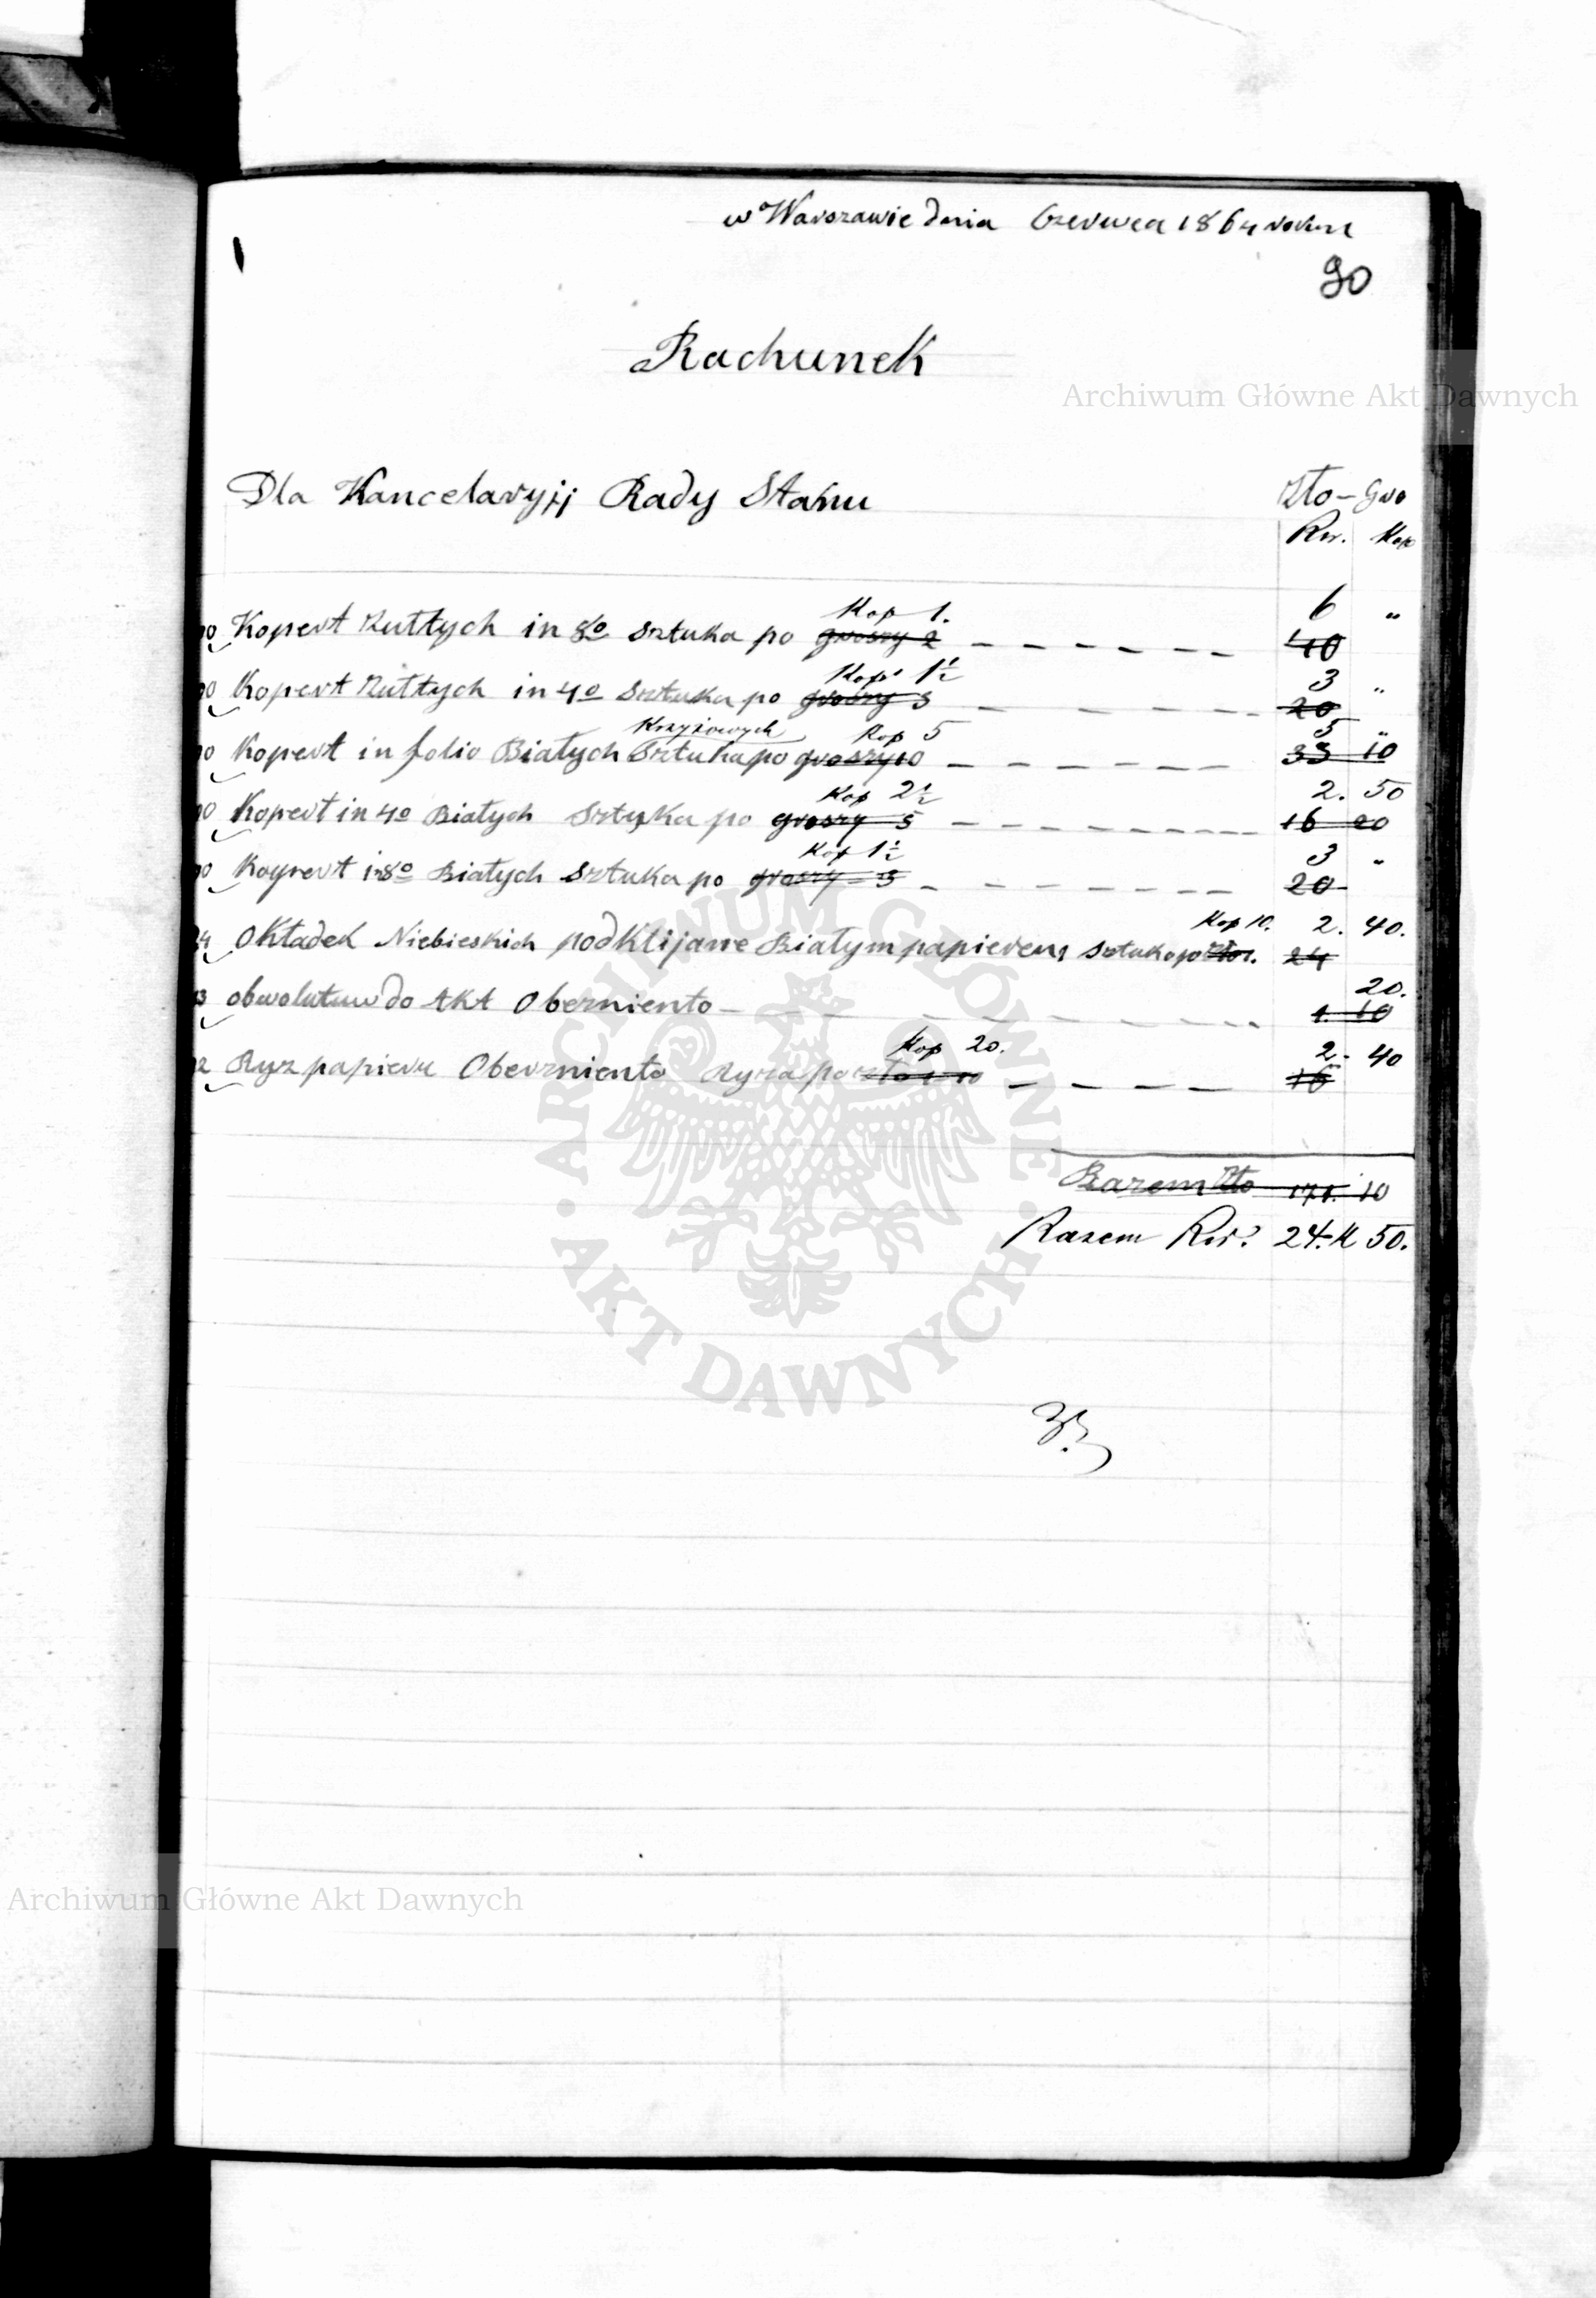 w Warszawie dnia Czerwca 1864 roku
90
Rachunek
Archiwum Główne Akt Dawnych
Dla Kancelaryjj Rady Stanu Zło - Gro
Rsr. Kop
Kop 1. 6 "
00 Kopert Zułtych in 8o sztuka po groszy 2 40
Kop 1½ 3 "
00 Kopert Zułtych in 4o Sztuka po groszy 3 20
Krzyżowych Kop 5 5 "
00 Kopert in folio Białych Sztuka po groszy 10 33 10
Kop 2½ 2. 50
00 Kopert in 4o Białych Sztuka po groszy 5 16 20
Kop 1½ 3 "
00 Kopert in 8o Białych Sztuka po groszy 3 20
Kop 10. 2. 40.
24 Okładek Niebieskich podklijane Białym papierem sztuka po 24
20.
3 obwolutuw do Akt Oberzniento 1. 10
Kop 20. 2. 40
12 Ryz papieru Oberzniento Ryza po 16
Razem Zło 171. 10
Razem Rsr. 24. K 50.
ARCHIWUM GŁÓWNE • AKT DAWNYCH •
Archiwum Główne Akt Dawnych